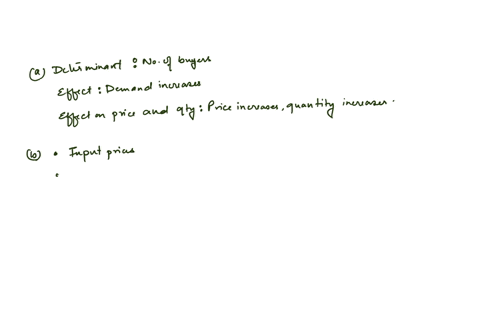 (a) Determinant : No. of buyers
Effect : Demand increases
Effect on price and qty : Price increases, quantity increases.
(b) • Input prices
•